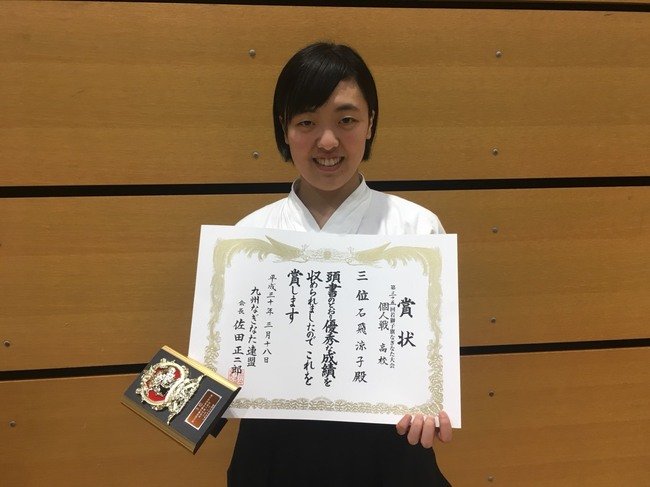 賞状
個人戦 高校
三位 石飛涼子殿
頭書のとおり優秀な成績を
収められましたのでこれを
賞します
平成三十年 三月十八日
九州なぎなた連盟
会長 佐田正二郎